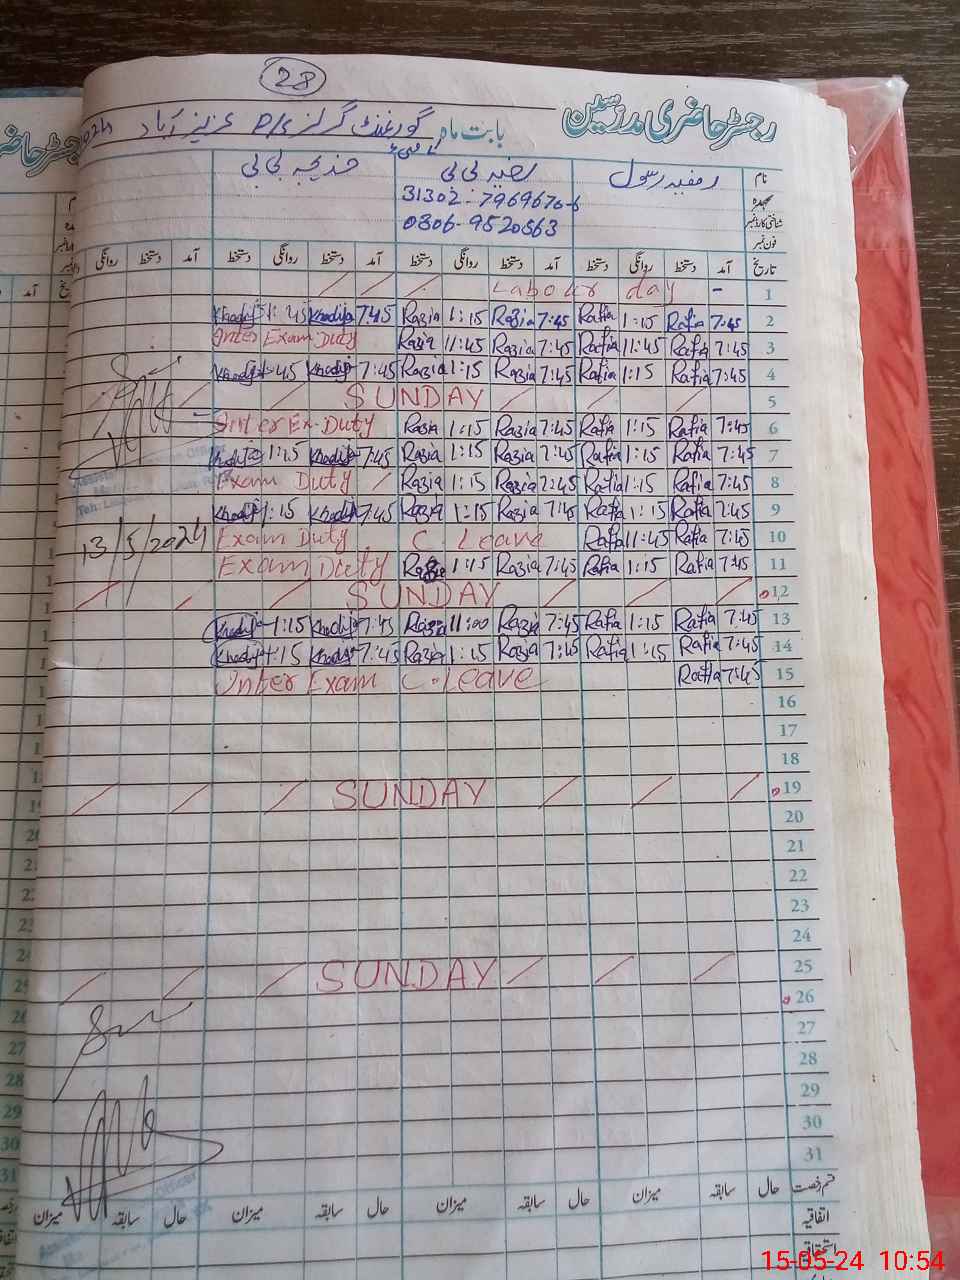 28
رجسٹر حاضری مدرسین بابت ماه گورنمنٹ گرلز P/S عزیز آباد
نام رفیہ رسول رضیہ بی بی خدیجہ بی بی
عہدہ 31302-7969670-6
شناختی کارڈ نمبر 0306-9520563
فون نمبر
تاریخ آمد دستخط روانگی دستخط آمد دستخط روانگی دستخط آمد دستخط روانگی دستخط آمد دستخط روانگی
Labour day - 1
Khadija 1:45 Khadija 7:45 Razia 1:15 Razia 7:45 Rafia 1:15 Rafia 7:45 2
Inter Exam Duty Razia 11:45 Razia 7:45 Rafia 11:45 Rafia 7:45 3
Khadija 1:45 Khadija 7:45 Razia 1:15 Razia 7:45 Rafia 1:15 Rafia 7:45 4
SUNDAY 5
Inter Ex. Duty Razia 1:15 Razia 7:45 Rafia 1:15 Rafia 7:45 6
Khadija 1:15 Khadija 7:45 Razia 1:15 Razia 7:45 Rafia 1:15 Rafia 7:45 7
Exam Duty Razia 1:15 Razia 7:45 Rafia 1:15 Rafia 7:45 8
Khadija 1:15 Khadija 7:45 Razia 1:15 Razia 7:45 Rafia 1:15 Rafia 7:45 9
13/5/2024 Exam Duty C. Leave Rafia 11:45 Rafia 7:45 10
Exam Duty Razia 1:15 Razia 7:45 Rafia 1:15 Rafia 7:45 11
SUNDAY 12
Khadija 1:15 Khadija 7:45 Razia 11:00 Razia 7:45 Rafia 1:15 Rafia 7:45 13
Khadija 1:15 Khadija 7:45 Razia 1:15 Razia 7:45 Rafia 1:15 Rafia 7:45 14
Inter Exam C. Leave Rafia 7:45 15
16
17
18
SUNDAY 19
20
21
22
23
24
SUNDAY 25
26
27
28
29
30
31
قسم رخصت حال سابقہ میزان حال سابقہ میزان حال سابقہ میزان حال سابقہ میزان
اتفاقیہ
استحقاقیہ
15-05-24 10:54